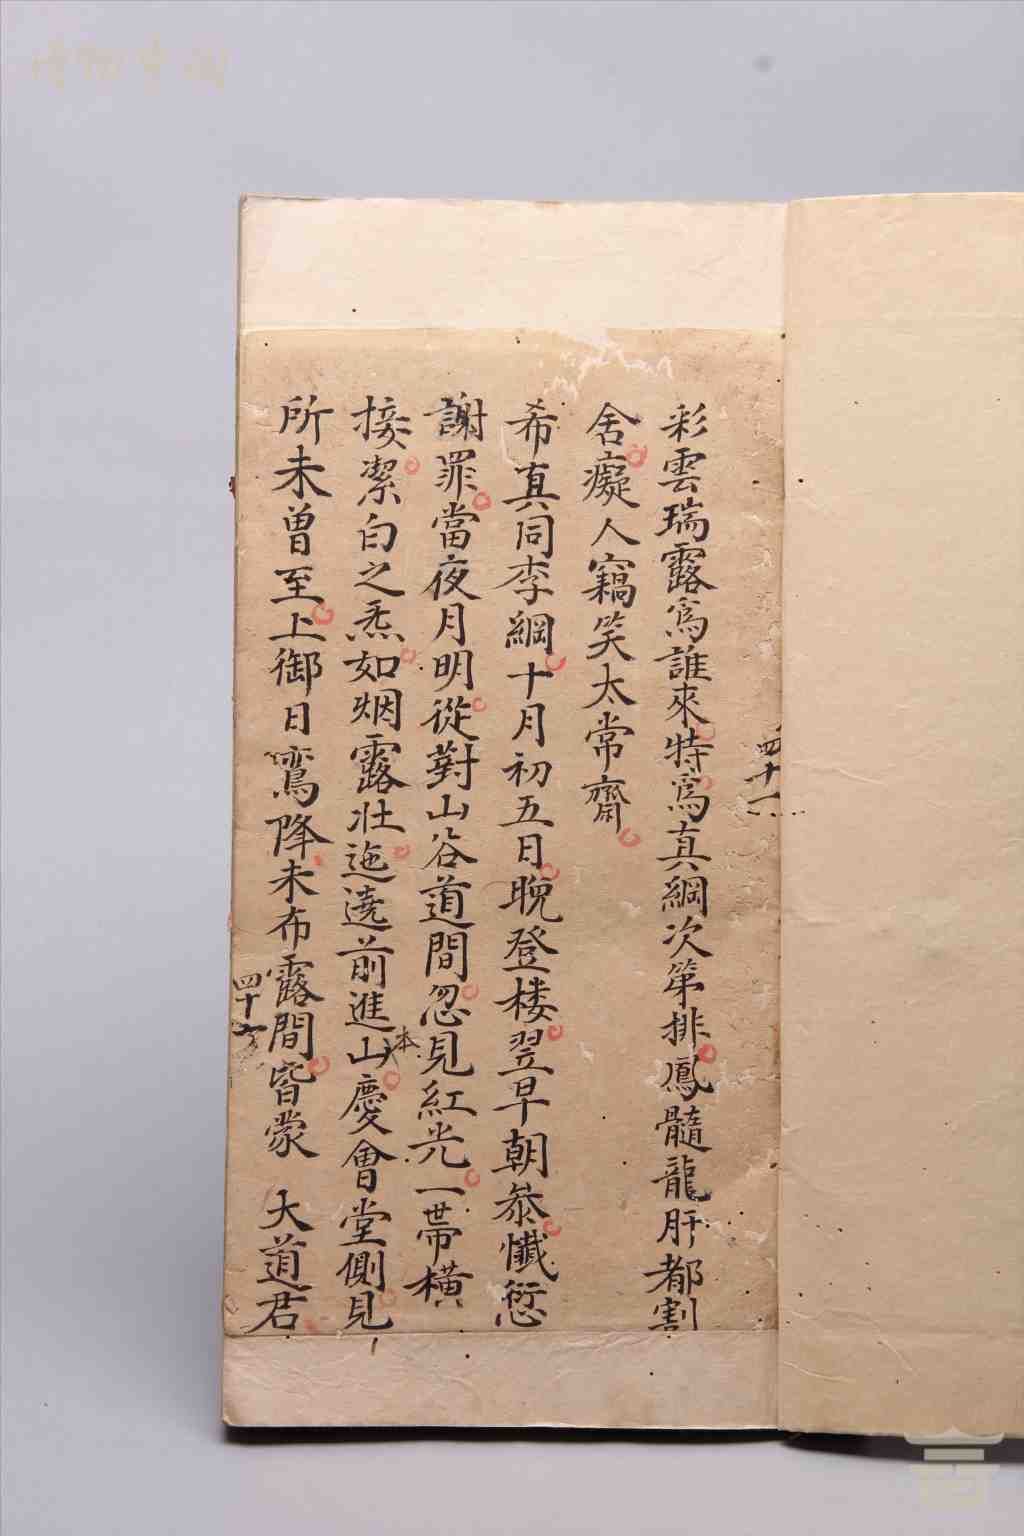 四十一
彩雲瑞露爲誰來特爲真綱次第排鳳髓龍肝都割
舍癡人竊笑太常齋
希真同李綱十月初五日晚登楼翌早朝叅懺愆
謝罪當夜月明從對山谷道間忽見紅光一帶橫
接潔白之炁如烟露壮迤遶前進山本慶會堂側見
所未曾至上御日鸞降未布露間皆蒙 大道君
四十
博物中国